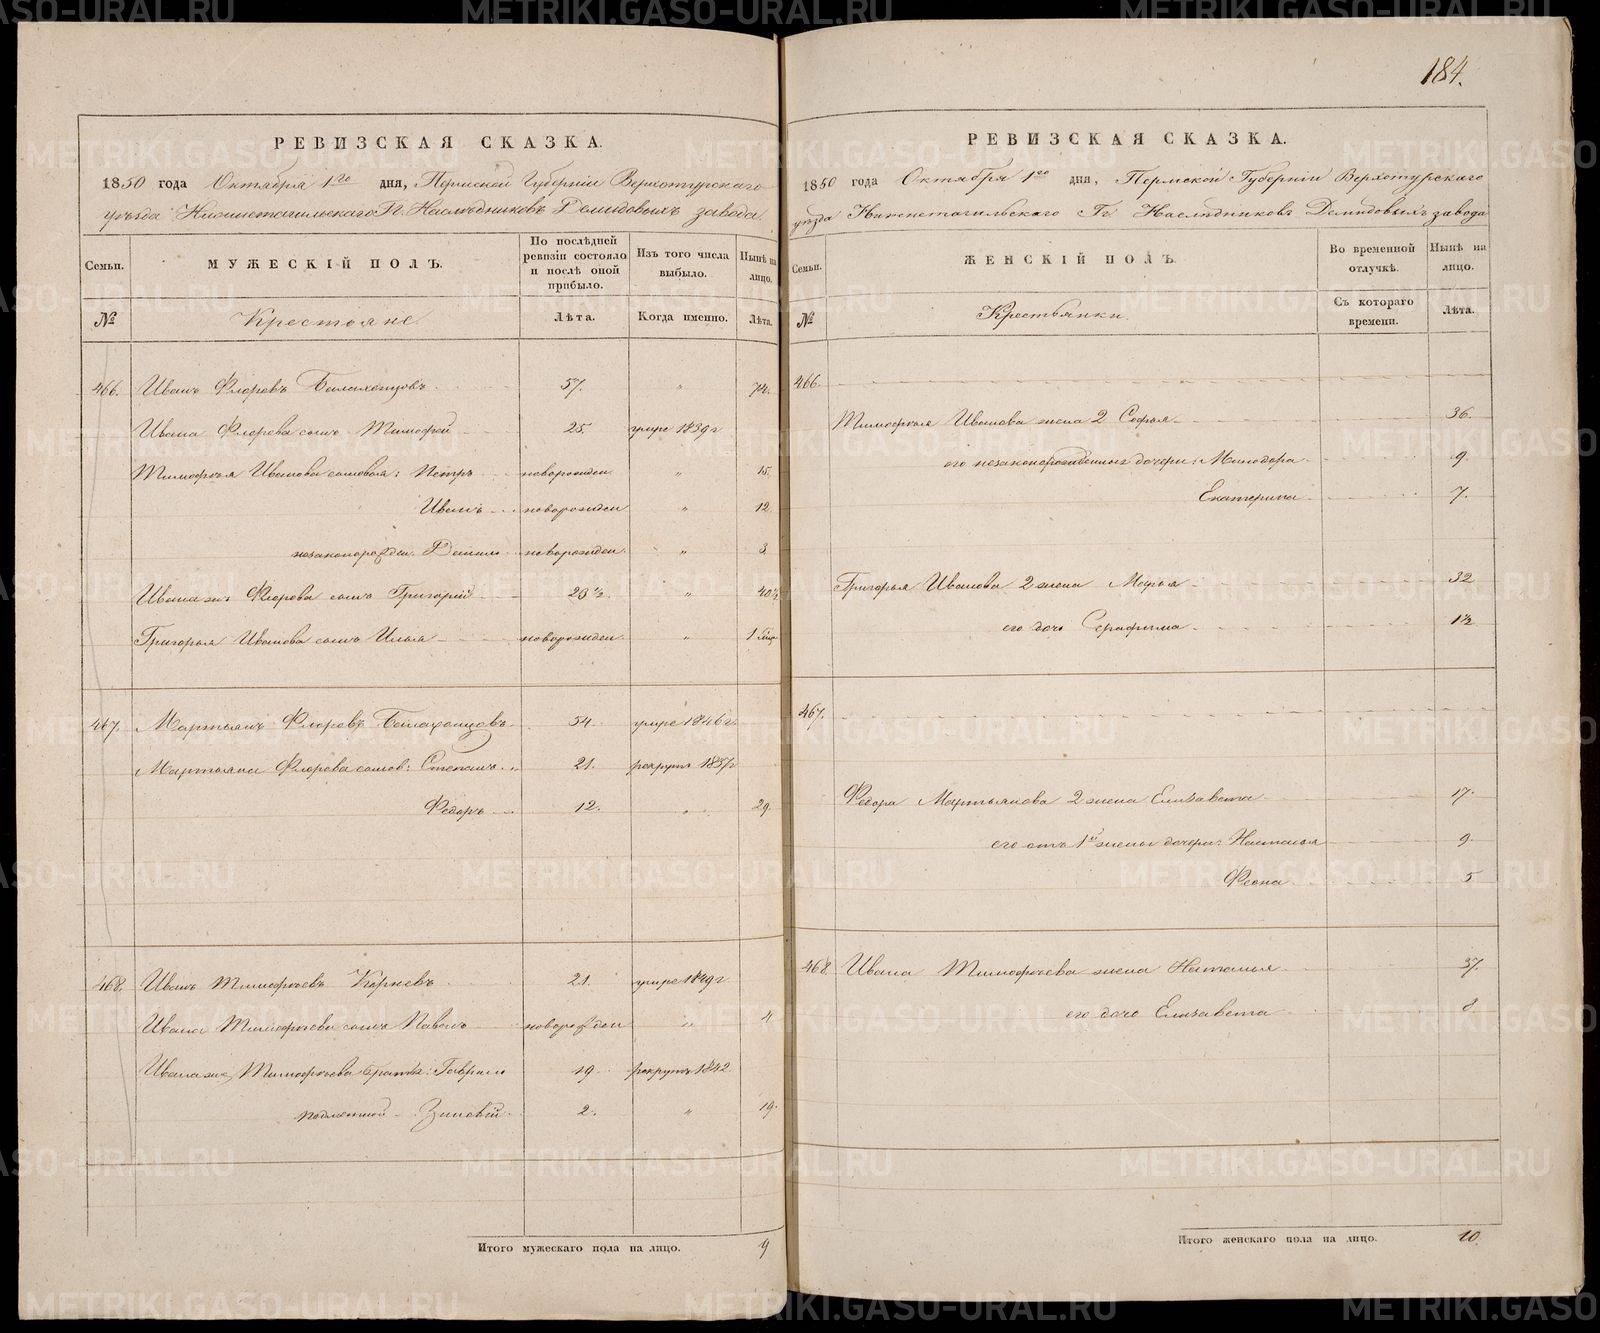 РЕВИЗСКАЯ СКАЗКА.
1850 года Октября 1го дня, Пермской Губерніи Верхотурскаго
уѣзда Нижнетагильскаго Гг. Наслѣдниковъ Демидовыхъ завода
Семьи. МУЖЕСКІЙ ПОЛЪ. По послѣдней ревизіи состояло и послѣ оной прибыло. Изъ того числа выбыло. Нынѣ на лицо.
№ Крестьяне Лѣта. Когда именно. Лѣта.
466. Иванъ Флоровъ 57. " 74.
Ивана Флорова сынъ Тимофей 25. умре 1839 г
Тимофея Иванова сыновья: Петръ новорожден " 15.
Иванъ новорожден " 12.
незаконорожден. Данило новорожден. " 3.
Ивана же Флорова сынъ Григорій 23½ " 40½
Григорья Иванова сынъ Илья новорожден. " 1
467. Мартьянъ Флоровъ 54. умре 1846 г.
Мартьяна Флорова сынов: Степанъ 21. рекрутъ 1837 г
Федоръ 12. " 29.
468. Иванъ Тимофеевъ Корневъ 21. умре 1849 г
Ивана Тимофеева сынъ Павелъ новорожден " 4
Ивана же Тимофеева братья: Гаврило 19. рекрутъ 1842.
Зиновій 2. " 19.
Итого мужескаго пола на лицо. 9
184.
РЕВИЗСКАЯ СКАЗКА.
1850 года Октября 1го дня, Пермской Губерніи Верхотурскаго
уѣзда Нижнетагильскаго Гг Наслѣдниковъ Демидовыхъ завода
Семьи. ЖЕНСКІЙ ПОЛЪ. Во временной отлучкѣ. Нынѣ на лицо.
№ Крестьянки. Съ котораго времени. Лѣта.
466.
Тимофея Иванова жена 2 Софья 36.
его незаконорожденныя дочери: Минодора 9.
Екатерина 7.
Григорья Иванова 2 жена Марья 32
его дочь Серафима 1½
467.
Федора Мартьянова 2 жена Елизавета 17.
его отъ 1й жены дочери: Настасья 9.
Феона 5
468. Ивана Тимофеева жена Наталья 37.
его дочь Елизавета 8.
Итого женскаго пола на лицо. 10.
METRIKI.GASO-URAL.RU